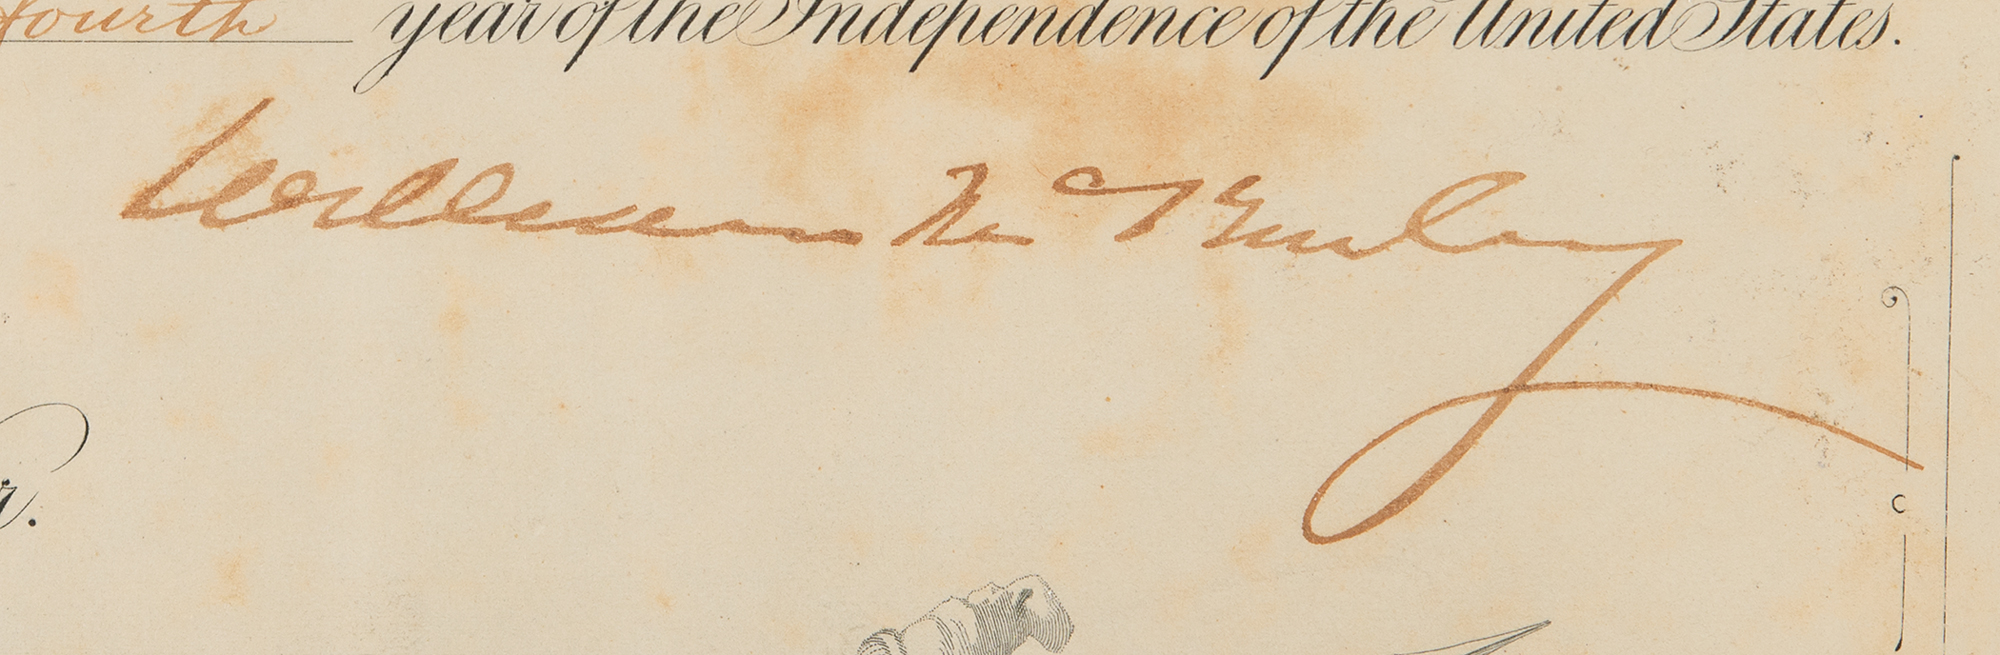 fourth year of the Independence of the United States.
William McKinley
r.